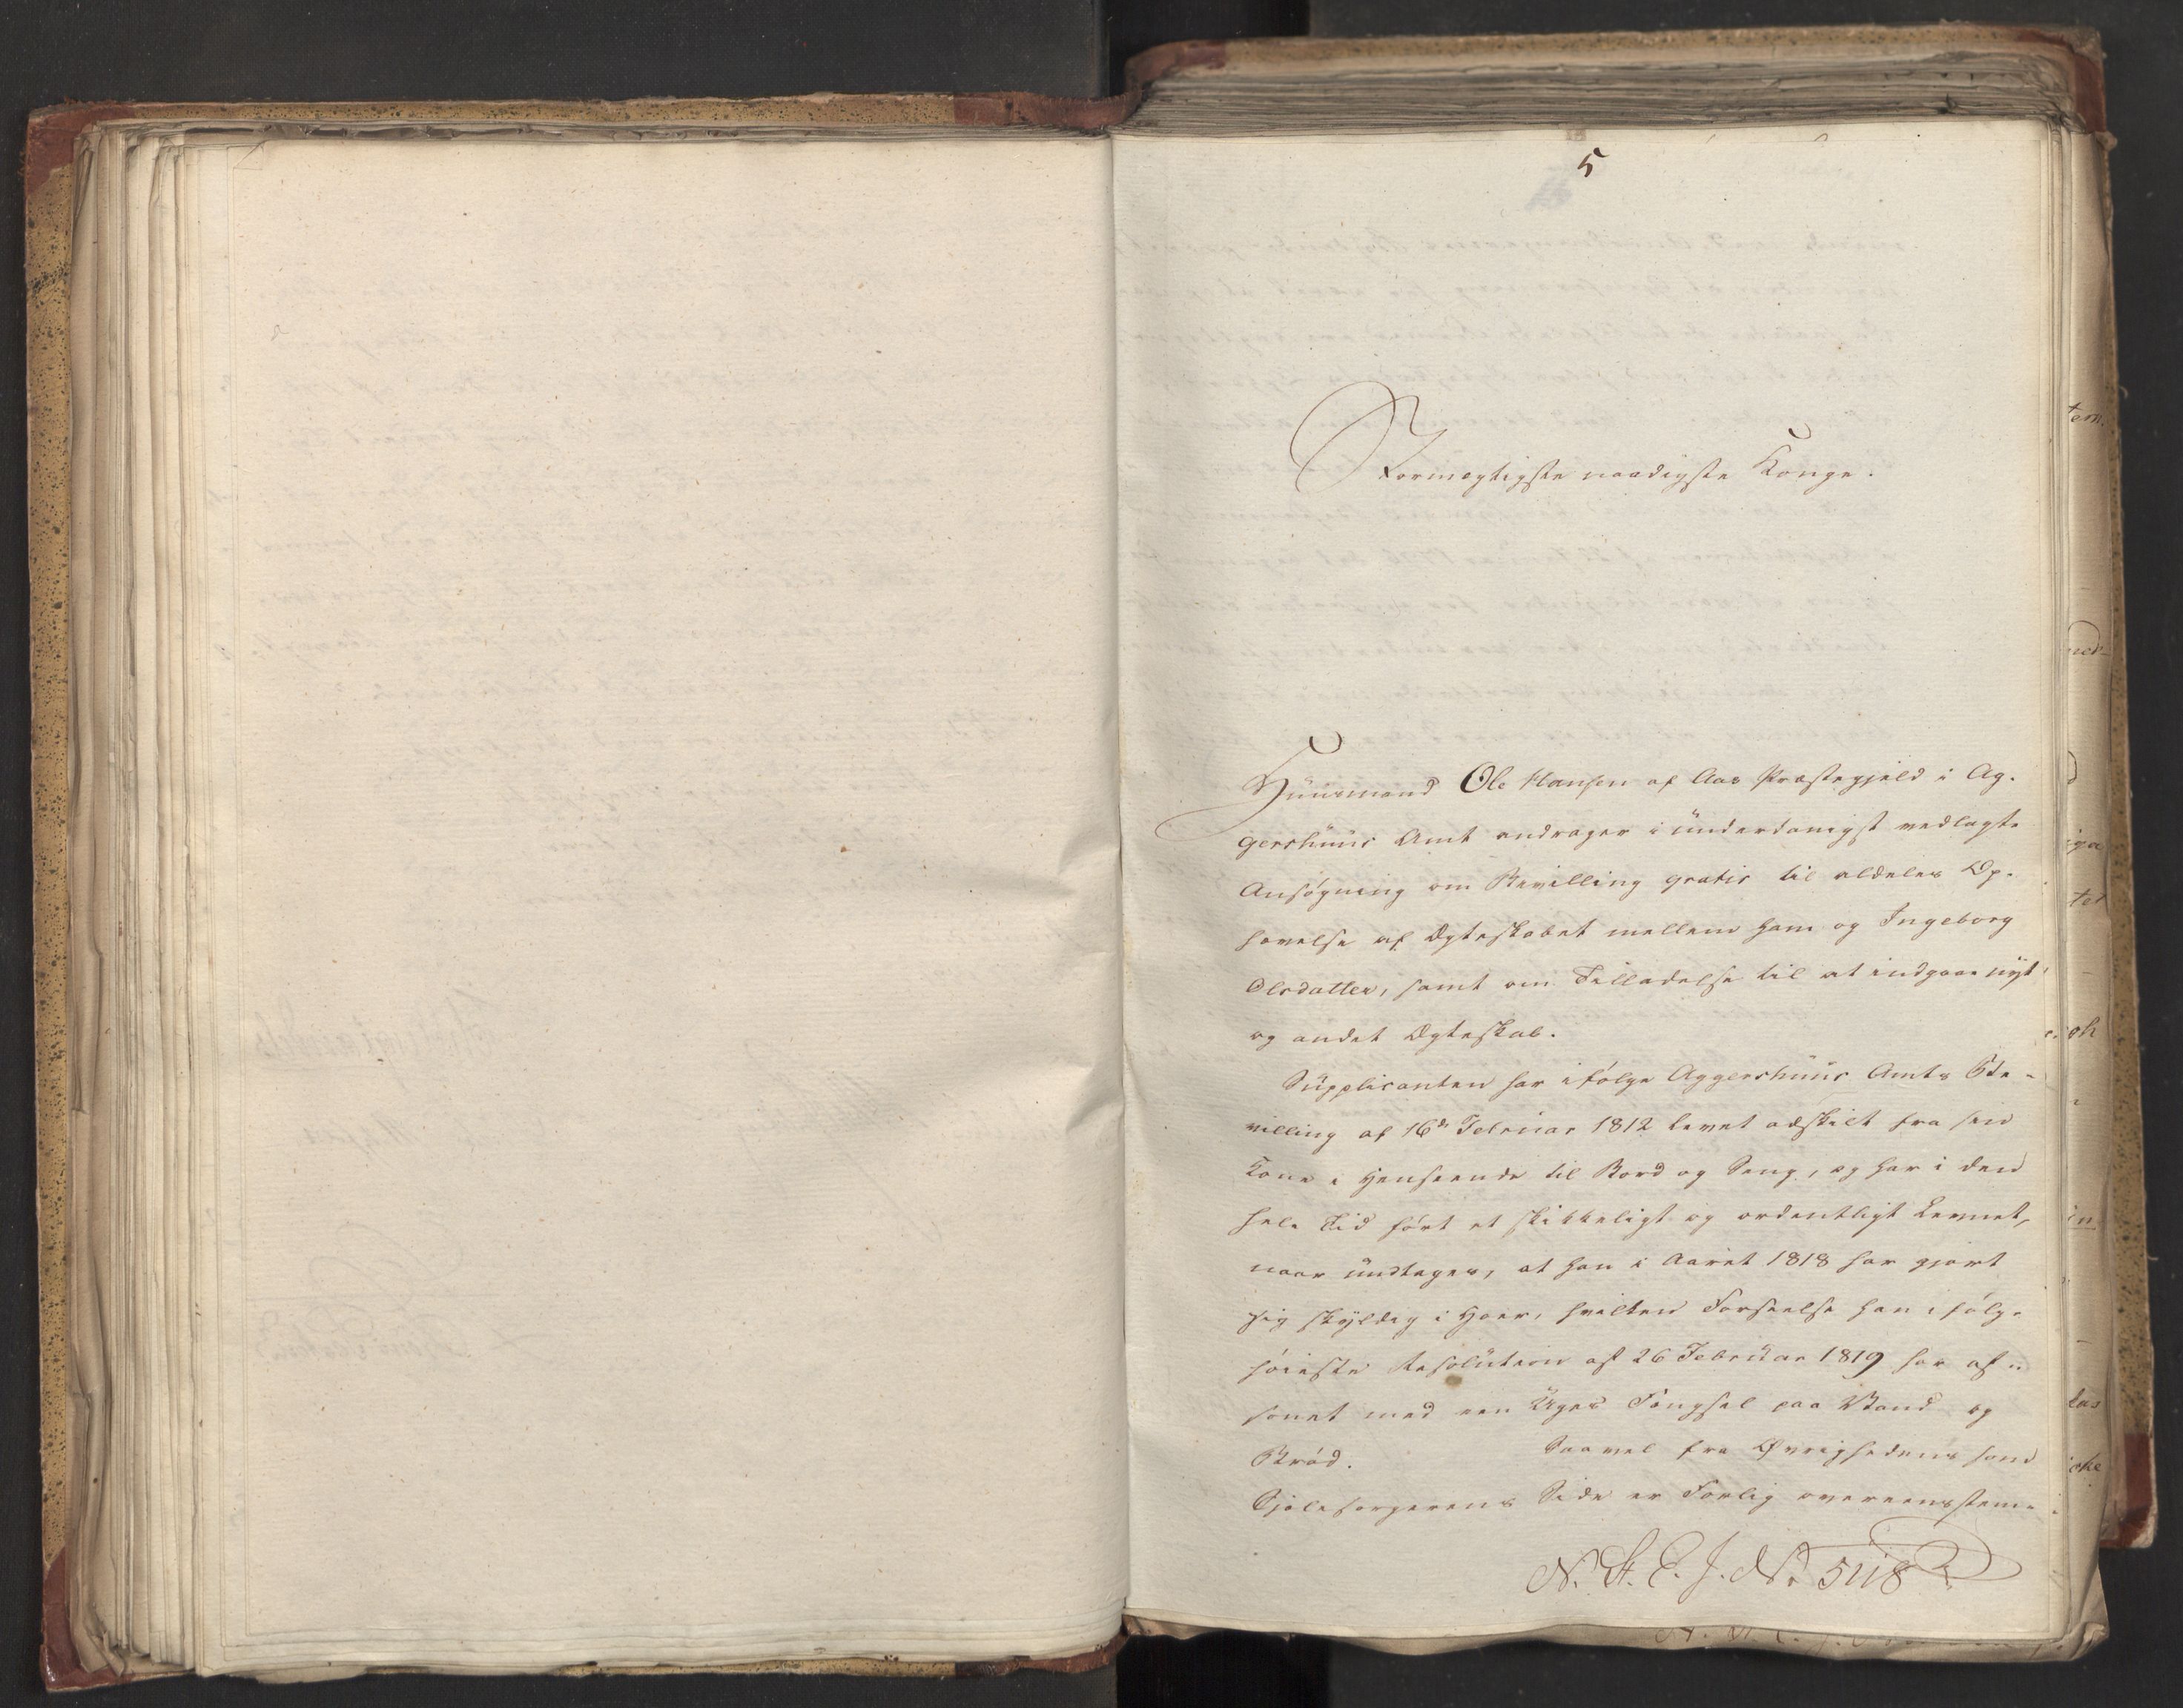 5
Formægtigste naadigste Konge.
Huusmand Ole Hansen af Aas Præstegjeld i Ag-
gershuus Amt andrager i underdanigst vedlagte
Ansøgning om Bevilling gratis til aldeles Op-
hævelse af Ægteskabet mellem ham og Ingeborg
Olsdatter, samt om Tilladelse til at indgaae nyt
og andet Ægteskab.
Supplicanten har ifølge Aggershuus Amts Be-
villing af 16de Februar 1812 levet adskilt fra sin
Kone i Henseende til Bord og Seng, og har i den
hele Tid ført et skikkeligt og ordentligt Levnet,
naar undtages, at han i Aaret 1818 har gjort
sig skyldig i Hoer, hvilken Forseelse han ifølge
høieste Resolution af 26 Februar 1819 har af-
sonet med een Uges Fængsel paa Vand og
Brød. Saavel fra Øvrighedens som
Sjælesørgerens Side er Forlig overeensstem-
N. A. E. J. No 5118